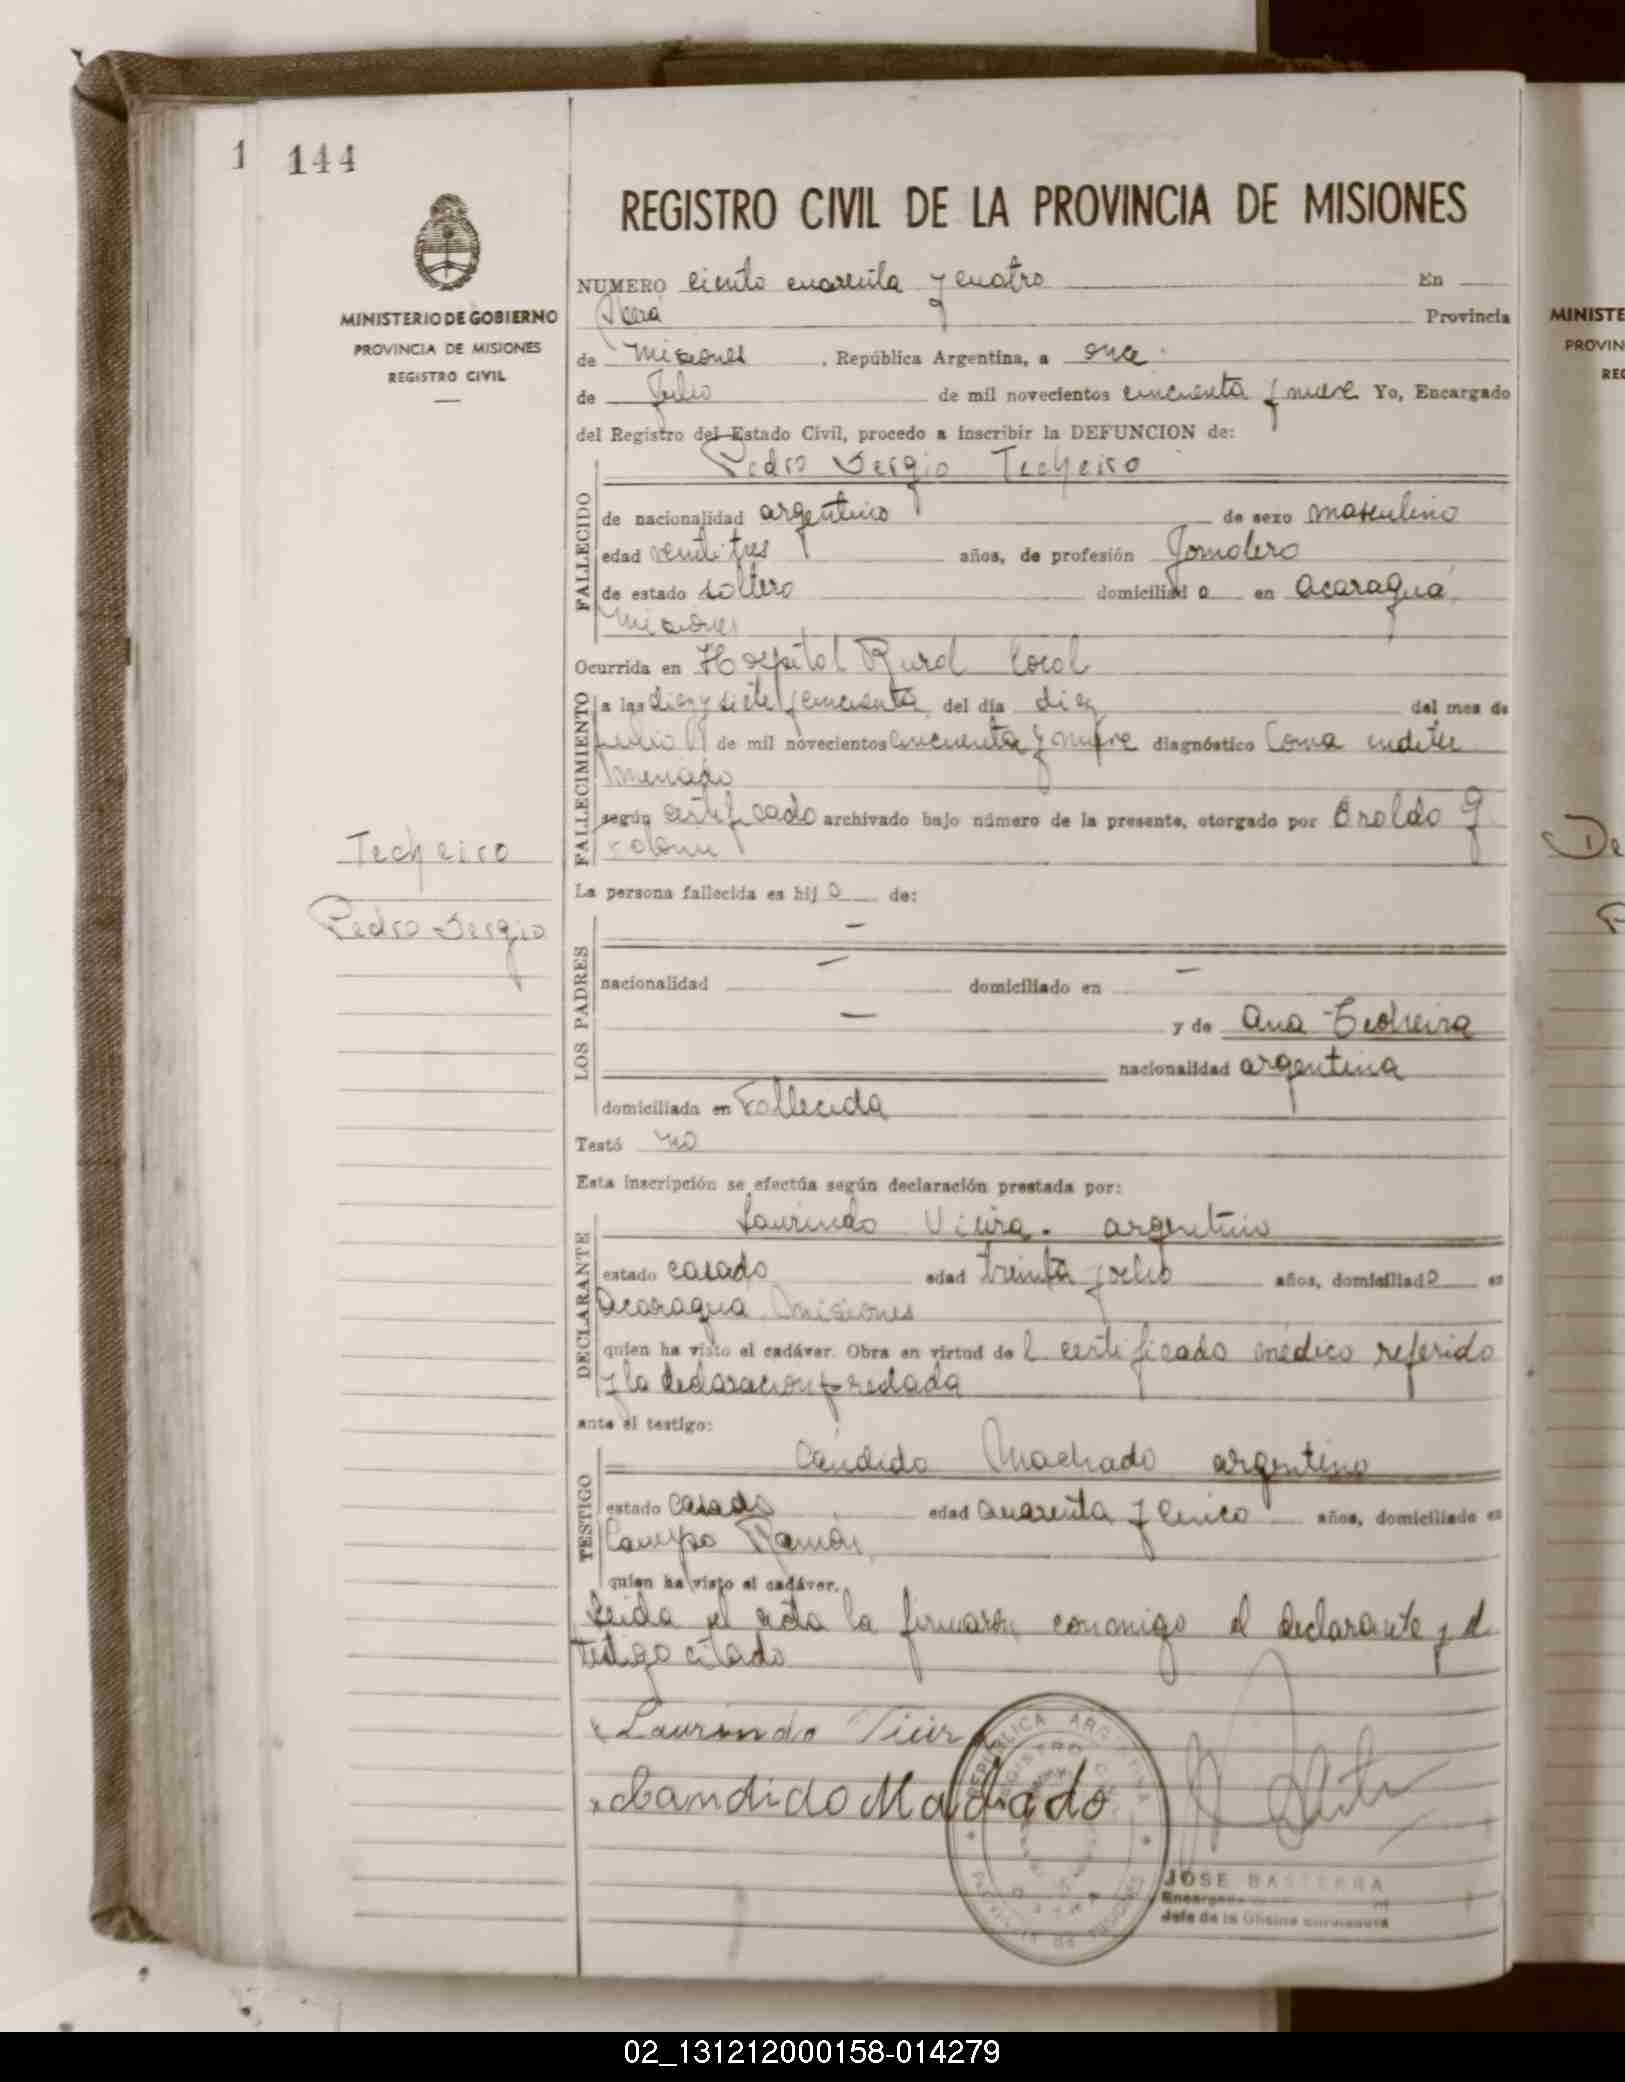 1 144
REGISTRO CIVIL DE LA PROVINCIA DE MISIONES
MINISTERIO DE GOBIERNO
PROVINCIA DE MISIONES
REGISTRO CIVIL
NUMERO ciento cuarenta y cuatro En
Provincia
de Misiones , República Argentina, a once
de Julio de mil novecientos cincuenta y nueve Yo, Encargado
del Registro del Estado Civil, procedo a inscribir la DEFUNCION de:
Pedro Sergio Techeiro
FALLECIDO
de nacionalidad argentino de sexo masculino
edad ventitres años, de profesión Jornalero
de estado soltero domiciliad o en acaragua
Misiones
Ocurrida en Hospital Rural local
FALLECIMIENTO
a las diez y siete y cincuenta del día diez del mes de
Julio de mil novecientos cincuenta y nueve diagnóstico Coma indeter
minado
según certificado archivado bajo número de la presente, otorgado por Oroldo G
Techeiro
Pedro Sergio
La persona fallecida es hij o de:
LOS PADRES
—
nacionalidad — domiciliado en —
— y de Ana Techeira
nacionalidad argentina
domiciliada en Fallecida
Testó no
Esta inscripción se efectúa según declaración prestada por:
DECLARANTE
Laurindo Vieira. argentino
estado casado edad treinta y ocho años, domiciliado en
acaragua Misiones
quien ha visto el cadáver. Obra en virtud de l certificado médico referido
y la declaracion prestada
ante el testigo:
TESTIGO
Cándido Machado argentino
estado casado edad cuarenta y cinco años, domiciliado en
Campo Ramón
quien ha visto el cadáver.
Leida el acta la firmaron conmigo el declarante y el
testigo citado
Laurindo Vieira
Candido Machado
REPUBLICA ARGENTINA
REGISTRO CIVIL
JOSE BASTERRA
Encargado
Jefe de la Oficina
MINISTE
PROVIN
REG
De
P
02_131212000158-014279